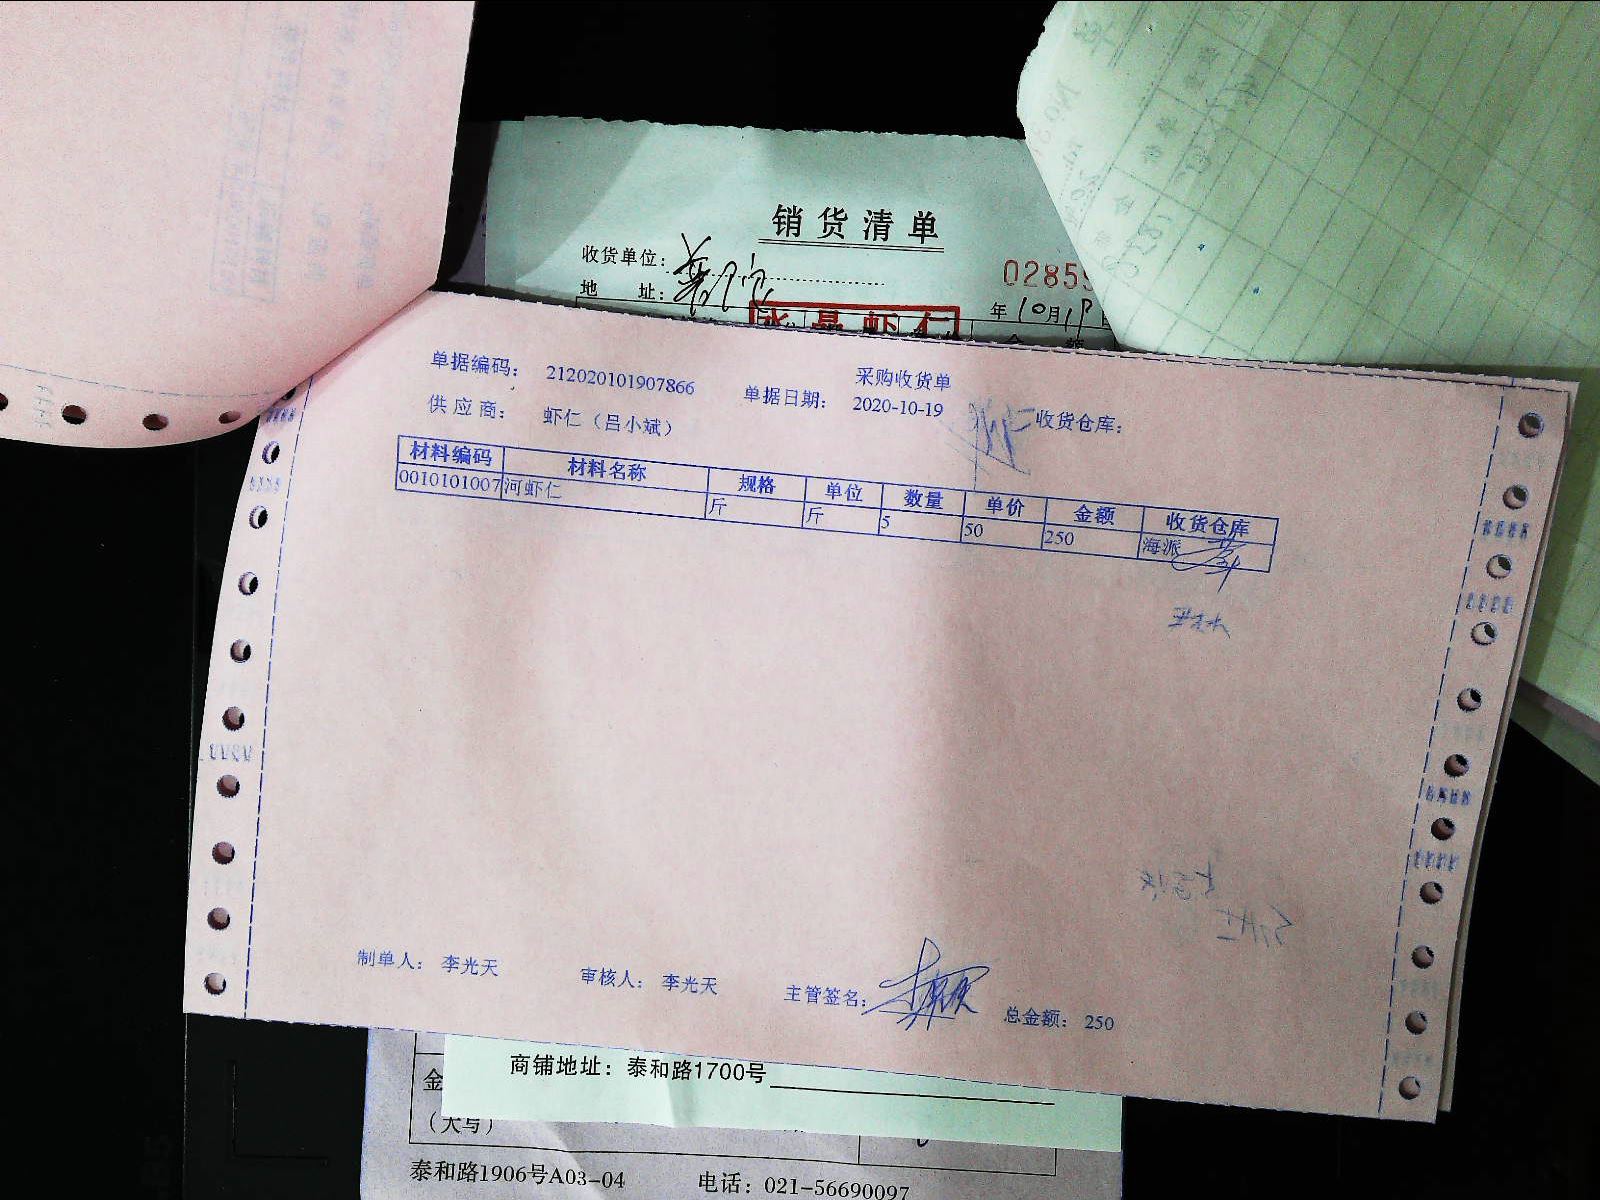 销货清单
收货单位:
02859
地 址:
年10月19日
永晶虾仁
采购收货单
单据编码: 212020101907866 单据日期: 2020-10-19 收货仓库:
供应商: 虾仁（吕小斌）
材料编码 材料名称 规格 单位 数量 单价 金额 收货仓库
0010101007 河虾仁 斤 斤 5 50 250 海派
制单人: 李光天 审核人: 李光天 主管签名: 总金额: 250
商铺地址: 泰和路1700号
金
(大写)
泰和路1906号A03-04 电话: 021-56690097